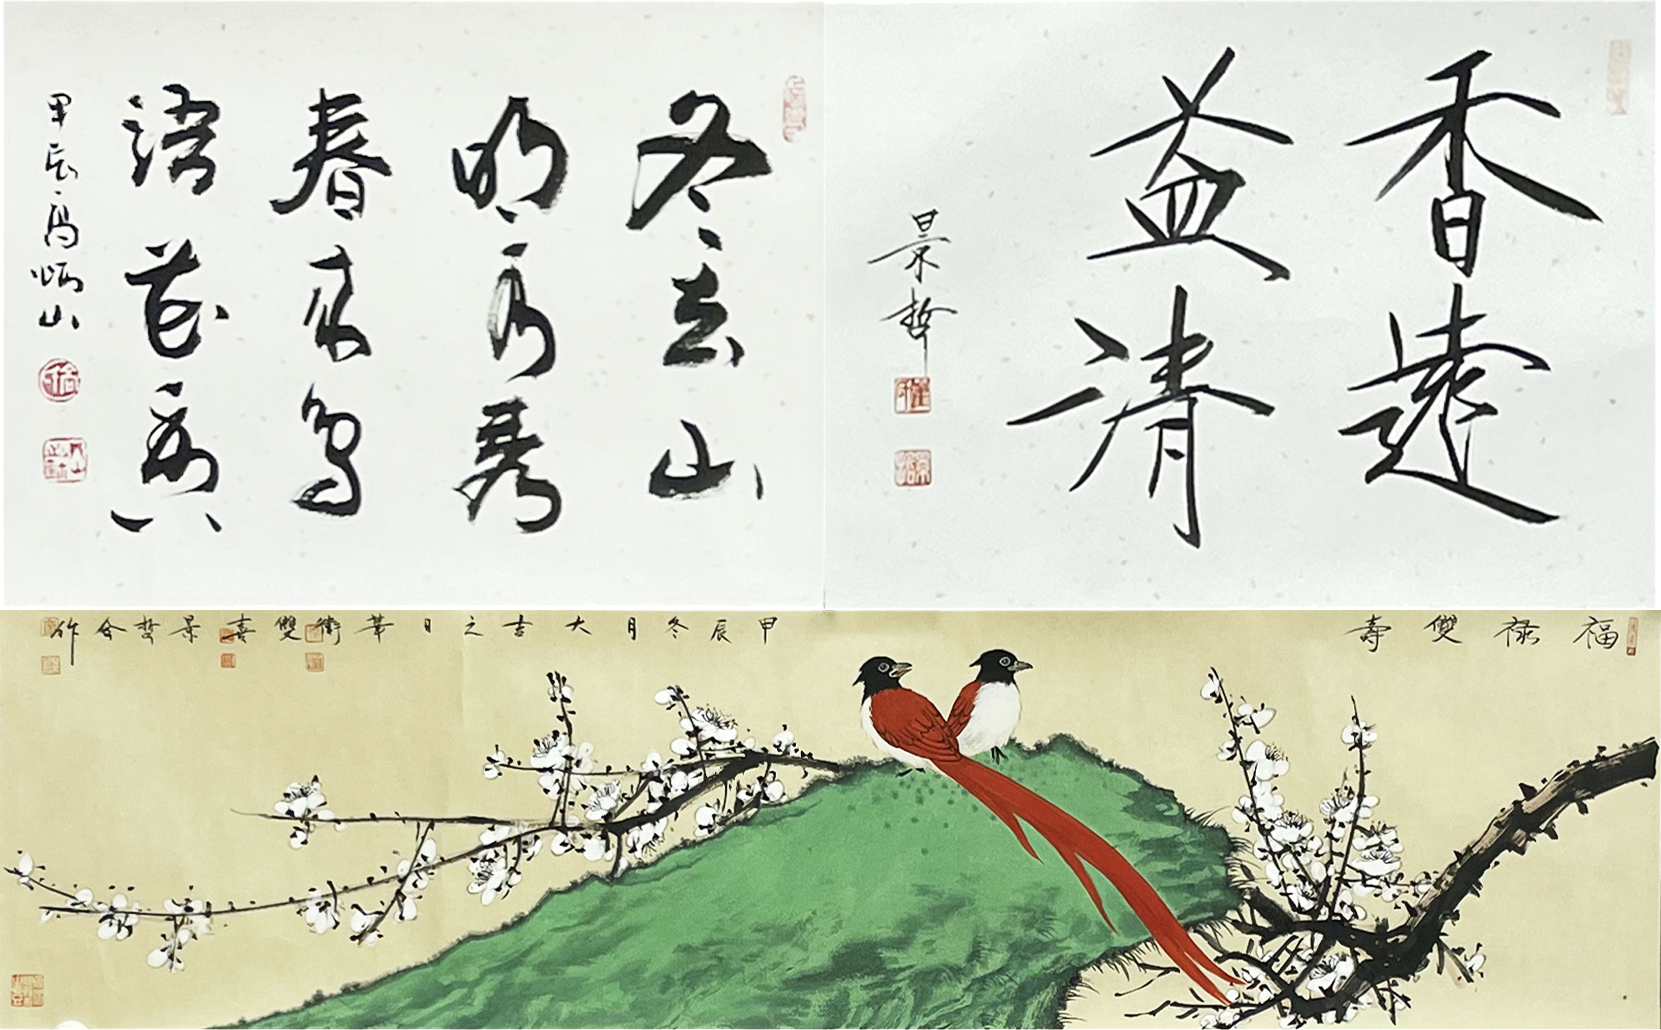 冬去山
明水秀
春来鸟
语花香
甲辰高炳山
香遠
益清
景哲
福禄雙寿
甲辰冬月大吉之日華衛雙喜景哲合作